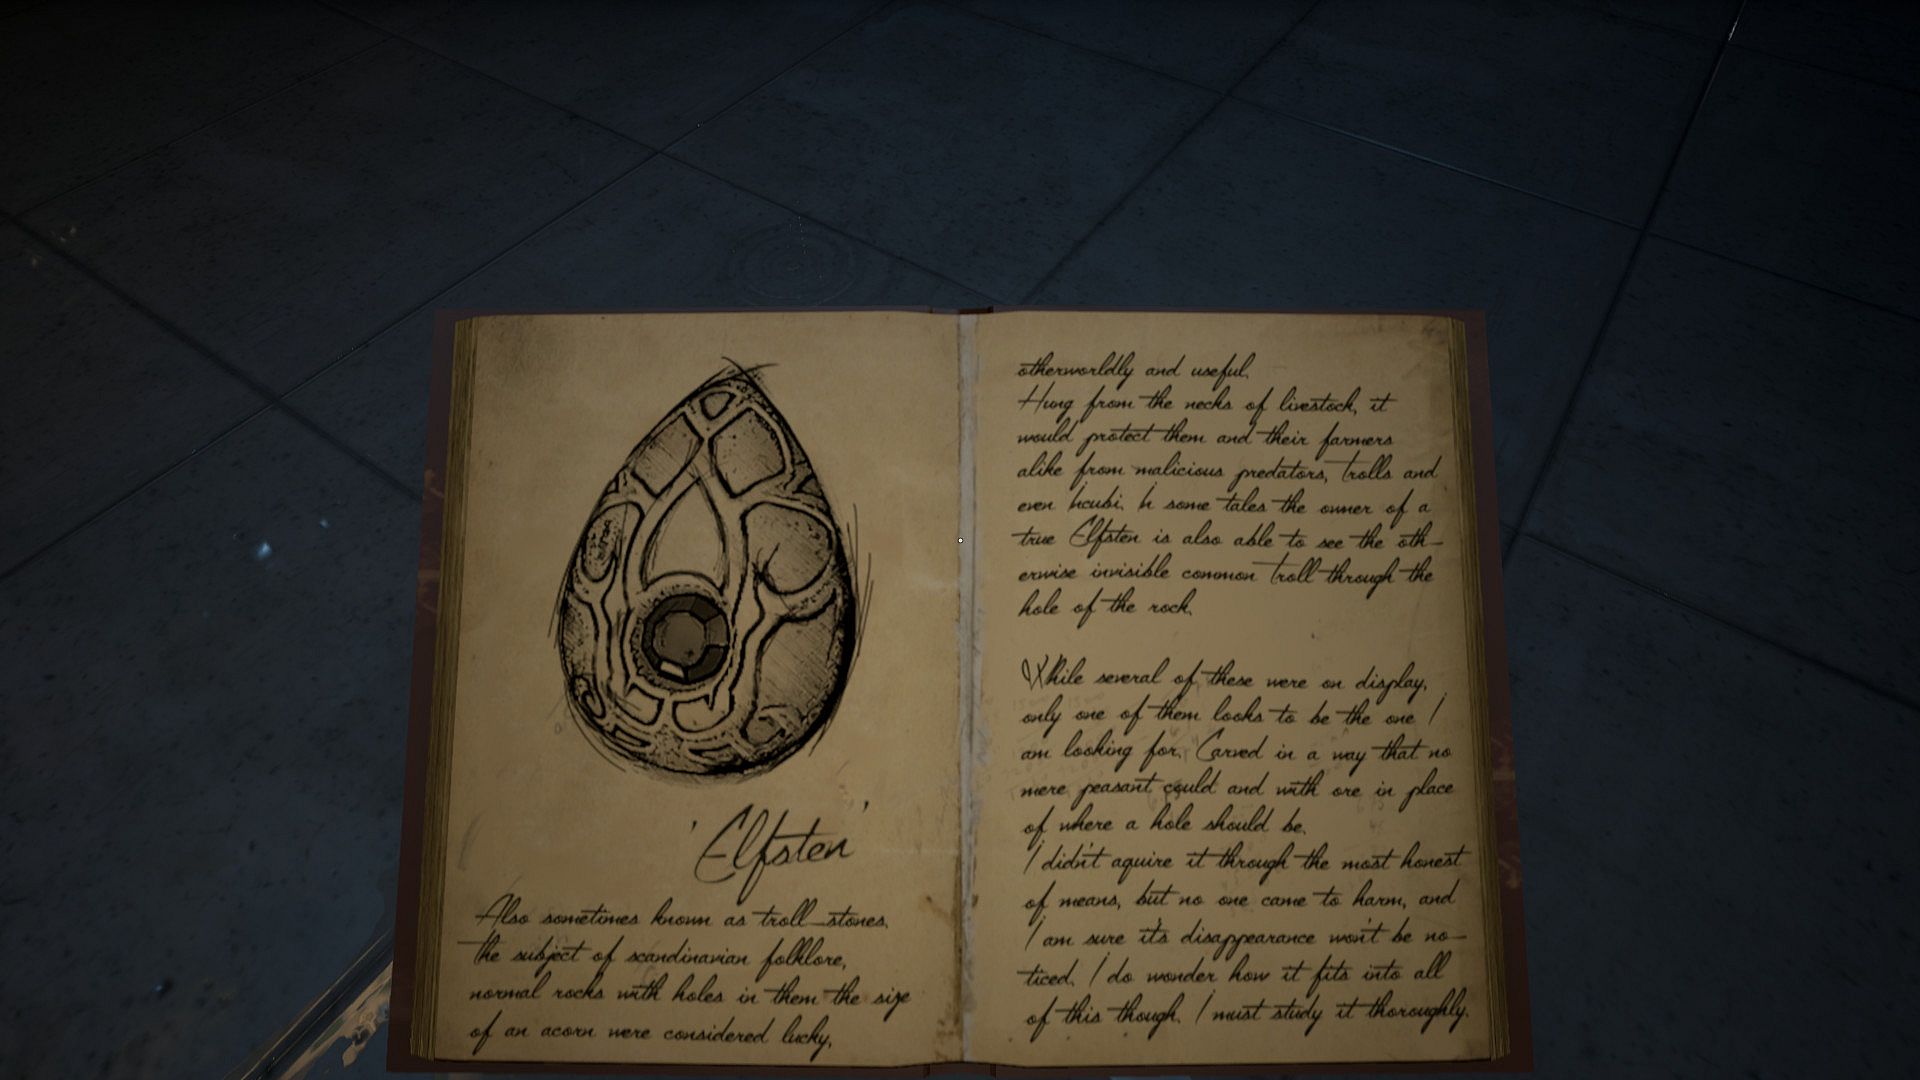 'Elfsten'
Also sometimes known as troll-stones,
the subject of scandinavian folklore,
normal rocks with holes in them the size
of an acorn were considered lucky,
otherworldly and useful.
Hung from the necks of livestock, it
would protect them and their farmers
alike from malicious predators, trolls and
even Incubi. In some tales the owner of a
true Elfsten is also able to see the oth-
erwise invisible common troll through the
hole of the rock.
While several of these were on display,
only one of them looks to be the one I
am looking for. Carved in a way that no
mere peasant could and with ore in place
of where a hole should be.
I didn't aquire it through the most honest
of means, but no one came to harm, and
I am sure it's disappearance won't be no-
ticed. I do wonder how it fits into all
of this though. I must study it thoroughly.